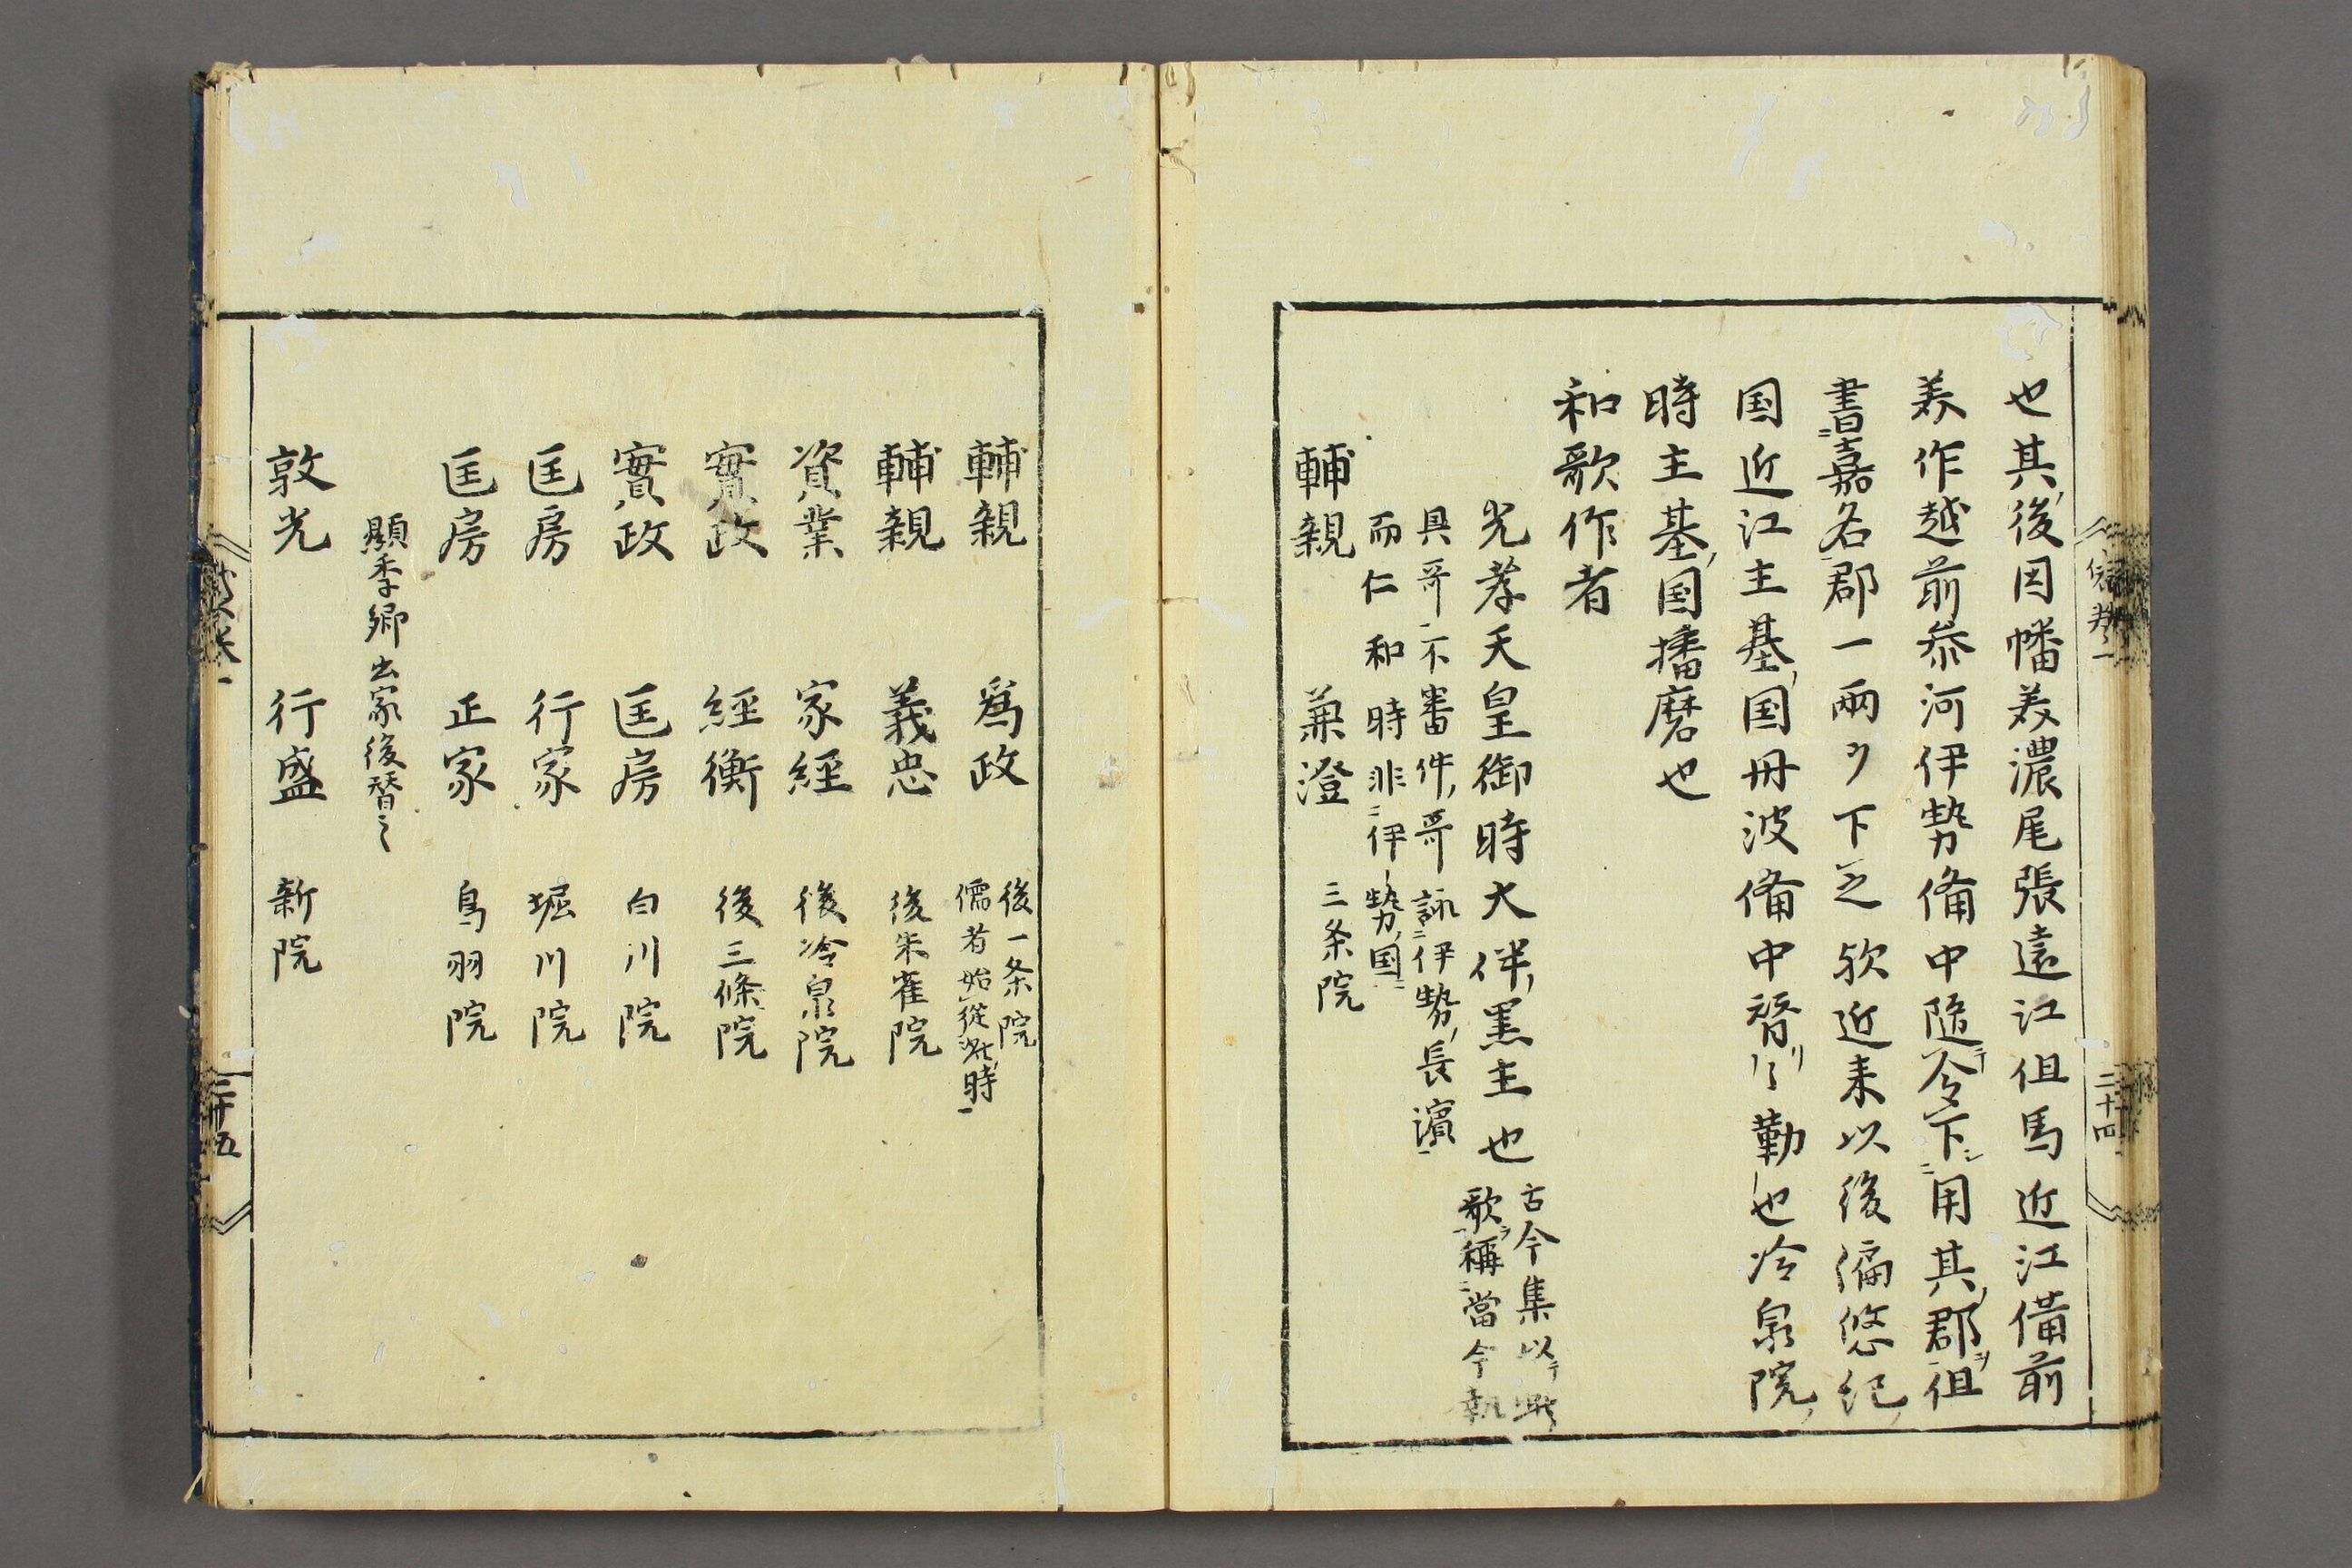 也其後因幡美濃尾張遠江但馬近江備前
美作越前叅河伊勢備中随令下用其郡但
書嘉名郡一両ヲ下之欤近来以後偏悠紀
国近江主基国丹波備中替〻勤也冷泉院
時主基国播磨也
和歌作者
光孝天皇御時大伴黒主也
古今集以此
歌稱當今執
具哥不審件哥詠伊勢長濱
而仁和時非伊勢国
輔親 兼澄 三条院
輔親 爲政 後一条院
儒者始従此時
輔親 義忠 後朱雀院
資業 家經 後冷泉院
實政 經衡 後三條院
實政 匡房 白川院
匡房 行家 堀川院
匡房 正家 鳥羽院
顯季卿出家後替之
敦光 行盛 新院
二十四
二十五